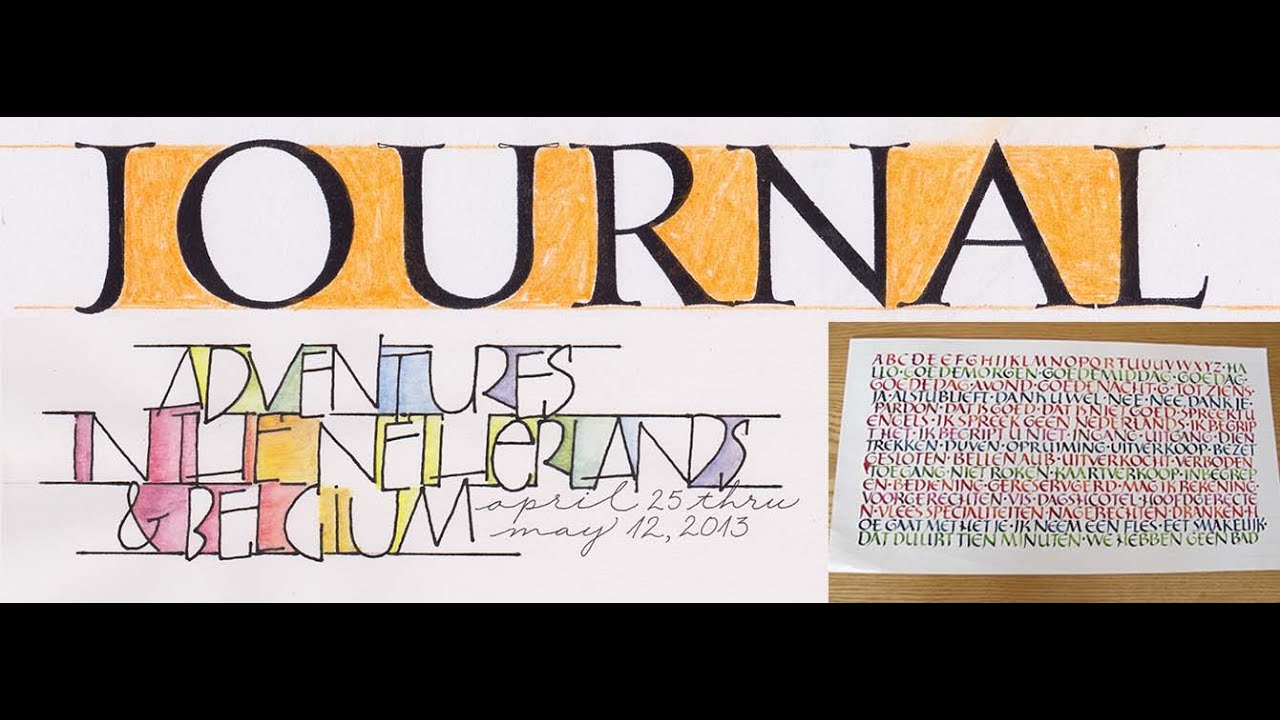 JOURNAL
ADVENTURES
IN THE NETHERLANDS
& BELGIUM
april 25 thru
may 12, 2013
A B C D E F G H I J K L M N O P Q R T U U U V W X Y Z · HA
LLO · GOEDEMORGEN · GOEDEMIDDAG · GOEDAG ·
GOEDEDAG · AVOND · GOEDENACHT · G · TOT ZIENS ·
JA · ALSTUBLIEFT · DANK U WEL · NEE · NEE, DANK JE ·
PARDON · DAT IS GOED · DAT IS NIET GOED · SPREEKT U
ENGELS · IK SPREEK GEEN NEDERLANDS · IK BEGRIP
HET · IK BEGRIPJ U NIET · INGANG · UITGANG · DIEN
TREKKEN · DUVEN · OPRUIMING · UITVERKOOP · BEZET
GESLOTEN · BELLEN AUB · UITVERKOCHT · VERBODEN
TOEGANG · NIET ROKEN · KAARTVERKOOP · INBEGREP
EN · BEDIENING · GERESERVGERD · MAG IK REKENING
VOORGERECHTEN · VIS · DAGSHCOTEL · HOOFDGERECTE
N · VLEES SPECIALITEITEN · NAGERECHTEN · DRANKEN · H
OE GAAT MET HET JE · IK NEEM EEN FLES · EET SMAKELIJK ·
DAT DUURT TIEN MINUTEN · WE HEBBEN GEEN BAD